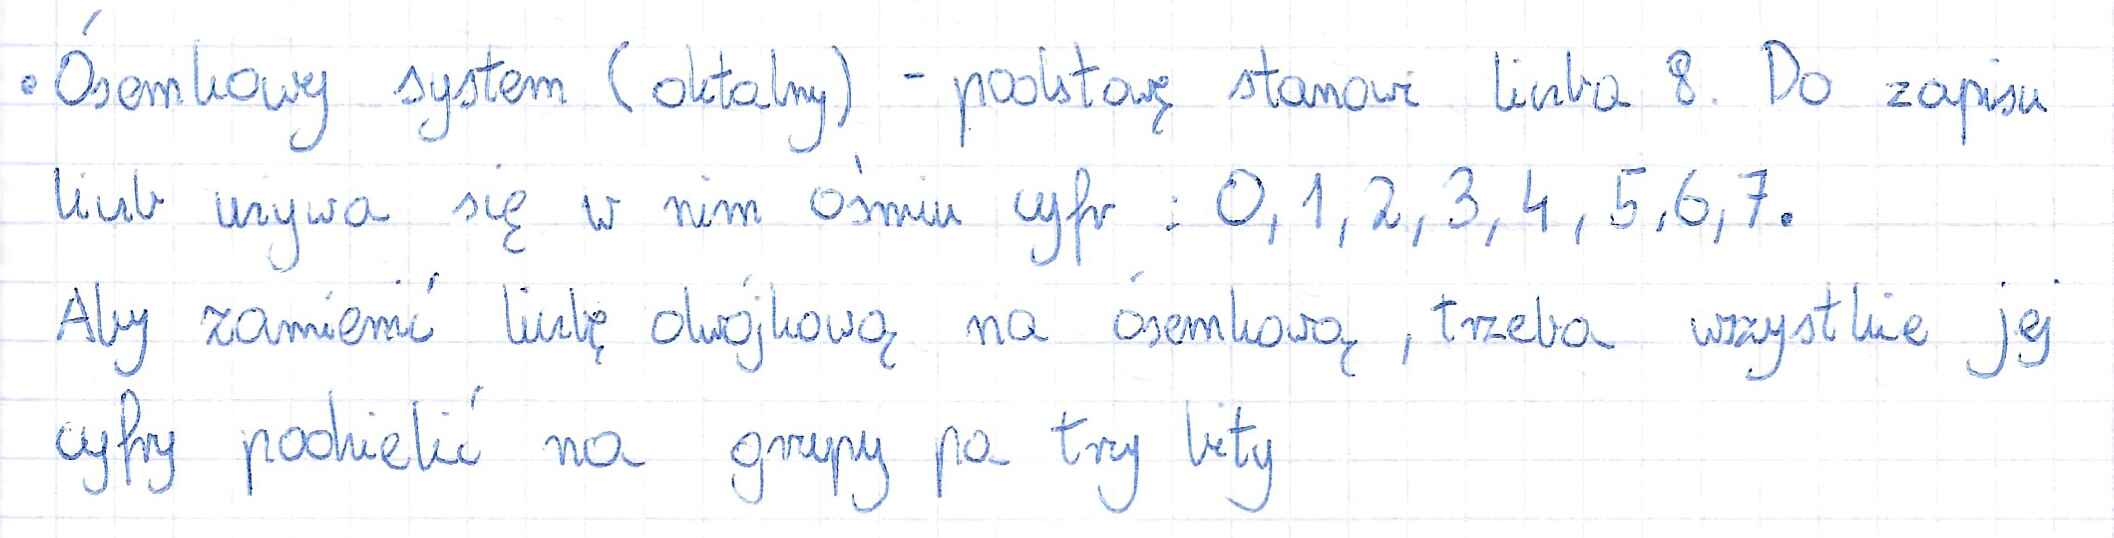 • Ósemkowy system (oktalny) - podstawę stanowi liczba 8. Do zapisu
liczb używa się w nim ośmiu cyfr : 0, 1, 2, 3, 4, 5, 6, 7.
Aby zamienić liczbę dwójkową na ósemkową, trzeba wszystkie jej
cyfry podzielić na grupy po trzy bity